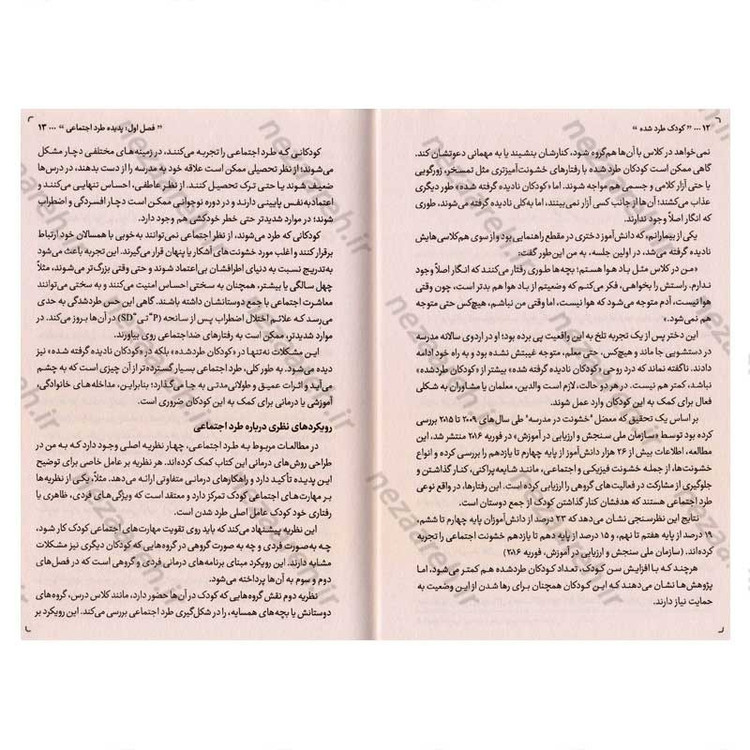 ۱۲ ... " کودک طرد شده "
نمی‌خواهد در کلاس با آن‌ها هم‌گروه شود، کنارشان بنشیند یا به مهمانی دعوتشان کند.
گاهی ممکن است کودکان طرد شده با رفتارهای خشونت‌آمیزتری مثل تمسخر، زورگویی
یا حتی آزار کلامی و جسمی هم مواجه شوند. اما «کودکان نادیده گرفته شده» طور دیگری
عذاب می‌کشند؛ آن‌ها از جانب کسی آزار نمی‌بینند، اما به‌کلی نادیده گرفته می‌شوند، طوری
که انگار اصلاً وجود ندارند.
یکی از بیمارانم، که دانش‌آموز دختری در مقطع راهنمایی بود و از سوی هم‌کلاسی‌هایش
نادیده گرفته می‌شد، در اولین جلسه، به من این‌طور گفت:
«من در کلاس مثل باد هوا هستم؛ بچه‌ها طوری رفتار می‌کنند که انگار اصلاً وجود
ندارم. راستش را بخواهی، فکر می‌کنم که وضعیتم از باد هوا هم بدتر است، چون وقتی
هوا نیست، آدم متوجه می‌شود که هوا نیست، اما وقتی من نباشم، هیچ‌کس حتی متوجه
هم نمی‌شود.»
این دختر پس از یک تجربه تلخ به این واقعیت پی برده بود؛ او در اردوی سالانه مدرسه
در دستشویی جا ماند و هیچ‌کس، حتی معلم، متوجه غیبتش نشده بود و به راه خود ادامه
دادند. ناگفته نماند که درد روحی «کودکان نادیده گرفته شده» بیشتر از «کودکان طردشده»
نباشد، کمتر هم نیست. در هر دو حالت، لازم است والدین، معلمان یا مشاوران به شکلی
فعال برای کمک به این کودکان وارد عمل شوند.
بر اساس یک تحقیق که معضل "خشونت در مدرسه" طی سال‌های ۲۰۰۹ تا ۲۰۱۵ بررسی
کرده بود توسط «سازمان ملی سنجش و ارزیابی در آموزش» در فوریه ۲۰۱۶ منتشر شد، این
مطالعه، اطلاعات بیش از ۲۶ هزار دانش‌آموز از پایه چهارم تا یازدهم را بررسی کرده و انواع
خشونت‌ها، از جمله خشونت فیزیکی و اجتماعی، مانند شایعه‌پراکنی، کنار گذاشتن و
جلوگیری از مشارکت در فعالیت‌های گروهی را بررسی کرده است. این رفتارها، در واقع نوعی
طرد اجتماعی هستند که هدفشان کنار گذاشتن کودک از جمع دوستان است.
نتایج این نظرسنجی نشان می‌دهد که ۲۳ درصد از دانش‌آموزان پایه چهارم تا ششم،
۱۹ درصد از پایه هفتم تا نهم، و ۱۵ درصد از پایه دهم تا یازدهم خشونت اجتماعی را تجربه
کرده‌اند. (سازمان ملی سنجش و ارزیابی در آموزش، فوریه ۲۰۱۶)
هرچند که با افزایش سن کودک، تعداد کودکان طردشده هم کمتر می‌شود، اما
پژوهش‌ها نشان می‌دهند که این کودکان همچنان برای رها شدن از این وضعیت به
حمایت نیاز دارند.
" فصل اول: پدیده طرد اجتماعی " ... ۱۳
کودکانی که طرد اجتماعی را تجربه می‌کنند، در زمینه‌های مختلفی دچار مشکل
می‌شوند؛ از نظر تحصیلی ممکن است علاقه خود به مدرسه را از دست بدهند، در درس‌ها
ضعیف شوند یا حتی ترک تحصیل کنند. از نظر عاطفی، احساس تنهایی می‌کنند و
اعتمادبه‌نفس پایینی دارند و در دوره نوجوانی ممکن است دچار افسردگی و اضطراب
شوند؛ در موارد شدیدتر حتی خطر خودکشی هم وجود دارد.
کودکانی که طرد می‌شوند، از نظر اجتماعی نمی‌توانند به‌خوبی با همسالان خود ارتباط
برقرار کنند و اغلب مورد خشونت‌های آشکار یا پنهان قرار می‌گیرند. این تجربه باعث می‌شود
به‌تدریج نسبت به دنیای اطرافشان بی‌اعتماد شوند و حتی وقتی بزرگ‌تر می‌شوند، مثلاً
چهل سالگی یا بیشتر، همچنان به سختی احساس امنیت می‌کنند و به سختی می‌توانند
معاشرت اجتماعی با جمع دوستانشان داشته باشند. گاهی این حس طردشدگی به حدی
می‌رسد که علائم اختلال اضطراب پس از سانحه (P"تی"SD) در آن‌ها بروز می‌کند. در
موارد شدیدتر، ممکن است به رفتارهای ضداجتماعی روی بیاورند.
این مشکلات نه‌تنها در «کودکان طردشده» بلکه در «کودکان نادیده گرفته شده» نیز
دیده می‌شود. به طور کلی، طرد اجتماعی بسیار گسترده‌تر از آن چیزی است که به چشم
می‌آید و اثرات عمیق و طولانی‌مدتی به جا می‌گذارد؛ بنابراین، مداخله‌های خانوادگی،
آموزشی یا درمانی برای کمک به این کودکان ضروری است.
رویکردهای نظری درباره طرد اجتماعی
در مطالعات مربوط به طرد اجتماعی، چهار نظریه اصلی وجود دارد که به من در
طراحی روش‌های درمانی این کتاب کمک کرده‌اند. هر نظریه بر عامل خاصی برای توضیح
این پدیده تأکید دارد و راهکارهای درمانی متفاوتی ارائه می‌دهد. مثلاً، یکی از نظریه‌ها
بر مهارت‌های اجتماعی کودک تمرکز دارد و معتقد است که ویژگی‌های فردی، ظاهری یا
رفتاری خود کودک عامل اصلی طرد شدن است.
این نظریه پیشنهاد می‌کند که باید روی تقویت مهارت‌های اجتماعی کودک کار شود،
چه به‌صورت فردی و چه به صورت گروهی در گروه‌هایی که کودکان دیگری نیز مشکلات
مشابه دارند. این رویکرد مبنای برنامه‌های درمانی فردی و گروهی است که در فصل‌های
دوم و سوم به آن‌ها پرداخته می‌شود.
نظریه دوم نقش گروه‌هایی که کودک در آن‌ها حضور دارد، مانند کلاس درس، گروه‌های
دوستانش یا بچه‌های همسایه، را در شکل‌گیری طرد اجتماعی بررسی می‌کند. این رویکرد بر
nezameh.ir